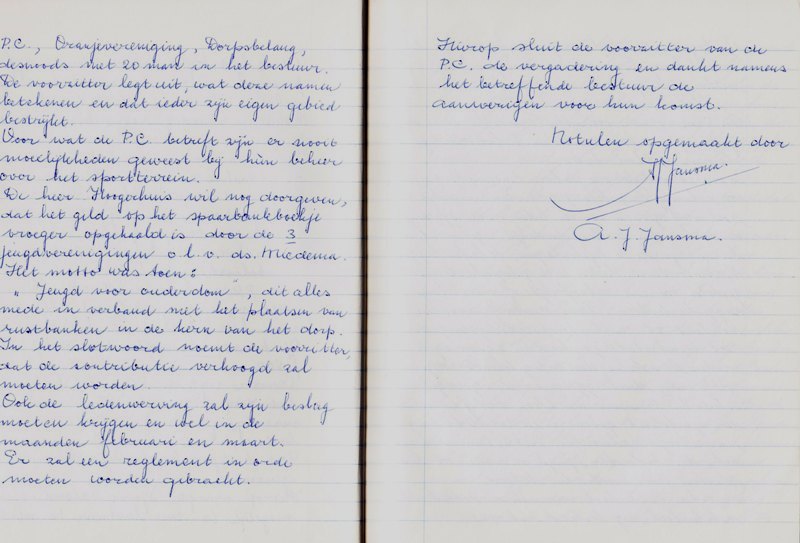 P.C., Oranjevereniging, Dorpsbelang,
desnoods met 20 man in het bestuur.
De voorzitter legt uit, wat deze namen
betekenen en dat ieder zijn eigen gebied
bestrijkt.
Voor wat de P.C. betreft zijn er nooit
moeilijkheden geweest bij hùn beheer
over het sportterrein.
De heer Hoogerhuis wil nog doorgeven,
dat het geld op het spaarbankboekje
vroeger opgehaald is door de 3
jeugdverenigingen o.l.v. ds. Miedema.
Het motto was toen:
„ Jeugd voor ouderdom", dit alles
mede in verband met het plaatsen van
rustbanken in de kern van het dorp.
In het slotwoord noemt de voorzitter,
dat de contributie verhoogd zal
moeten worden.
Ook de ledenwerving zal zijn beslag
moeten krijgen en wel in de
maanden februari en maart.
Er zal een reglement in orde
moeten worden gebracht.
Hierop sluit de voorzitter van de
P.C. de vergadering en dankt namens
het betreffende bestuur de
aanwezigen voor hun komst.
Notulen opgemaakt door
AJJansma.
A. J. Jansma.